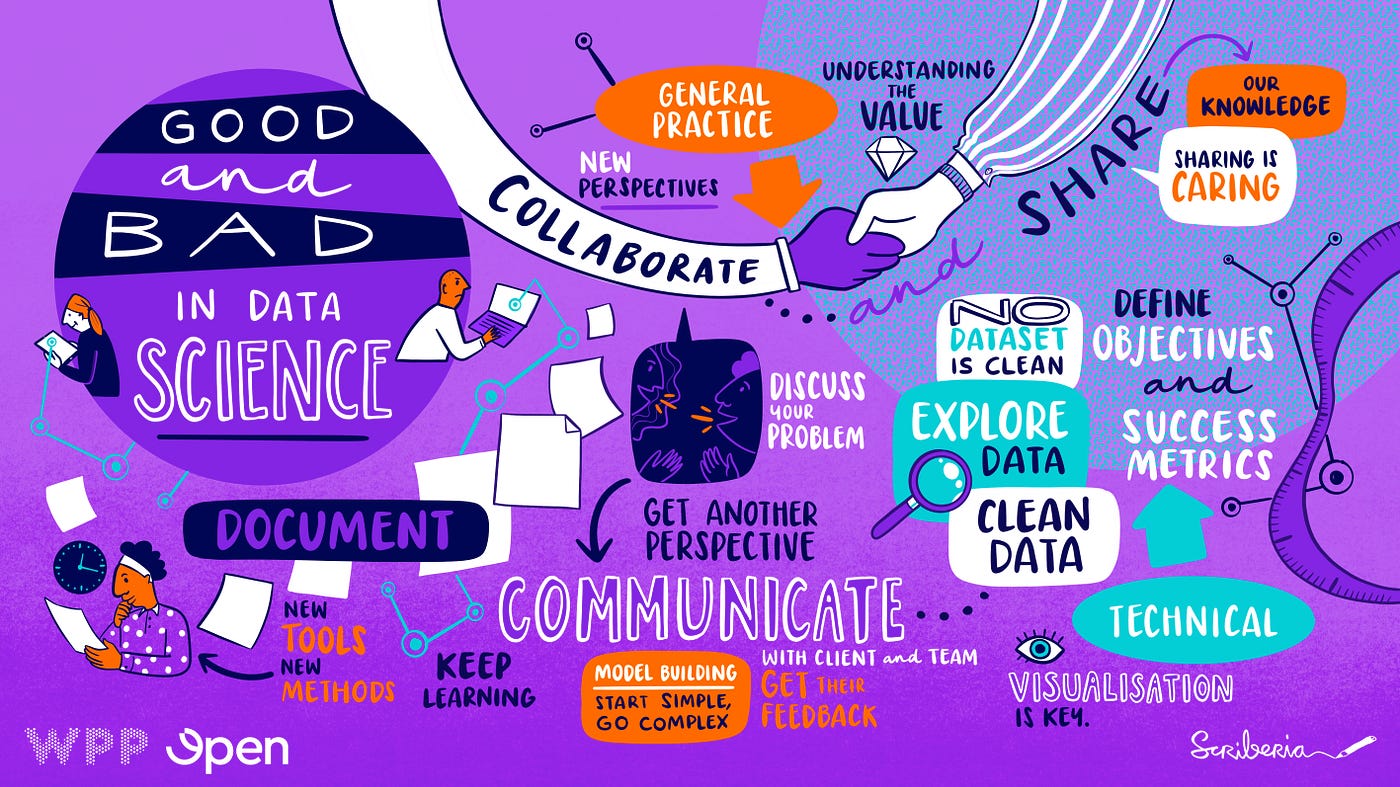 GOOD
and
BAD
IN DATA
SCIENCE
GENERAL
PRACTICE
NEW
PERSPECTIVES
COLLABORATE
and
SHARE
UNDERSTANDING
THE
VALUE
OUR
KNOWLEDGE
SHARING IS
CARING
NO
DATASET
IS CLEAN
EXPLORE
DATA
CLEAN
DATA
DEFINE
OBJECTIVES
and
SUCCESS
METRICS
TECHNICAL
VISUALISATION
IS KEY.
DISCUSS
YOUR
PROBLEM
GET ANOTHER
PERSPECTIVE
DOCUMENT
NEW
TOOLS
NEW
METHODS
KEEP
LEARNING
COMMUNICATE
WITH CLIENT and TEAM
GET THEIR
FEEDBACK
MODEL BUILDING
START SIMPLE,
GO COMPLEX
WPP Open
Scriberia